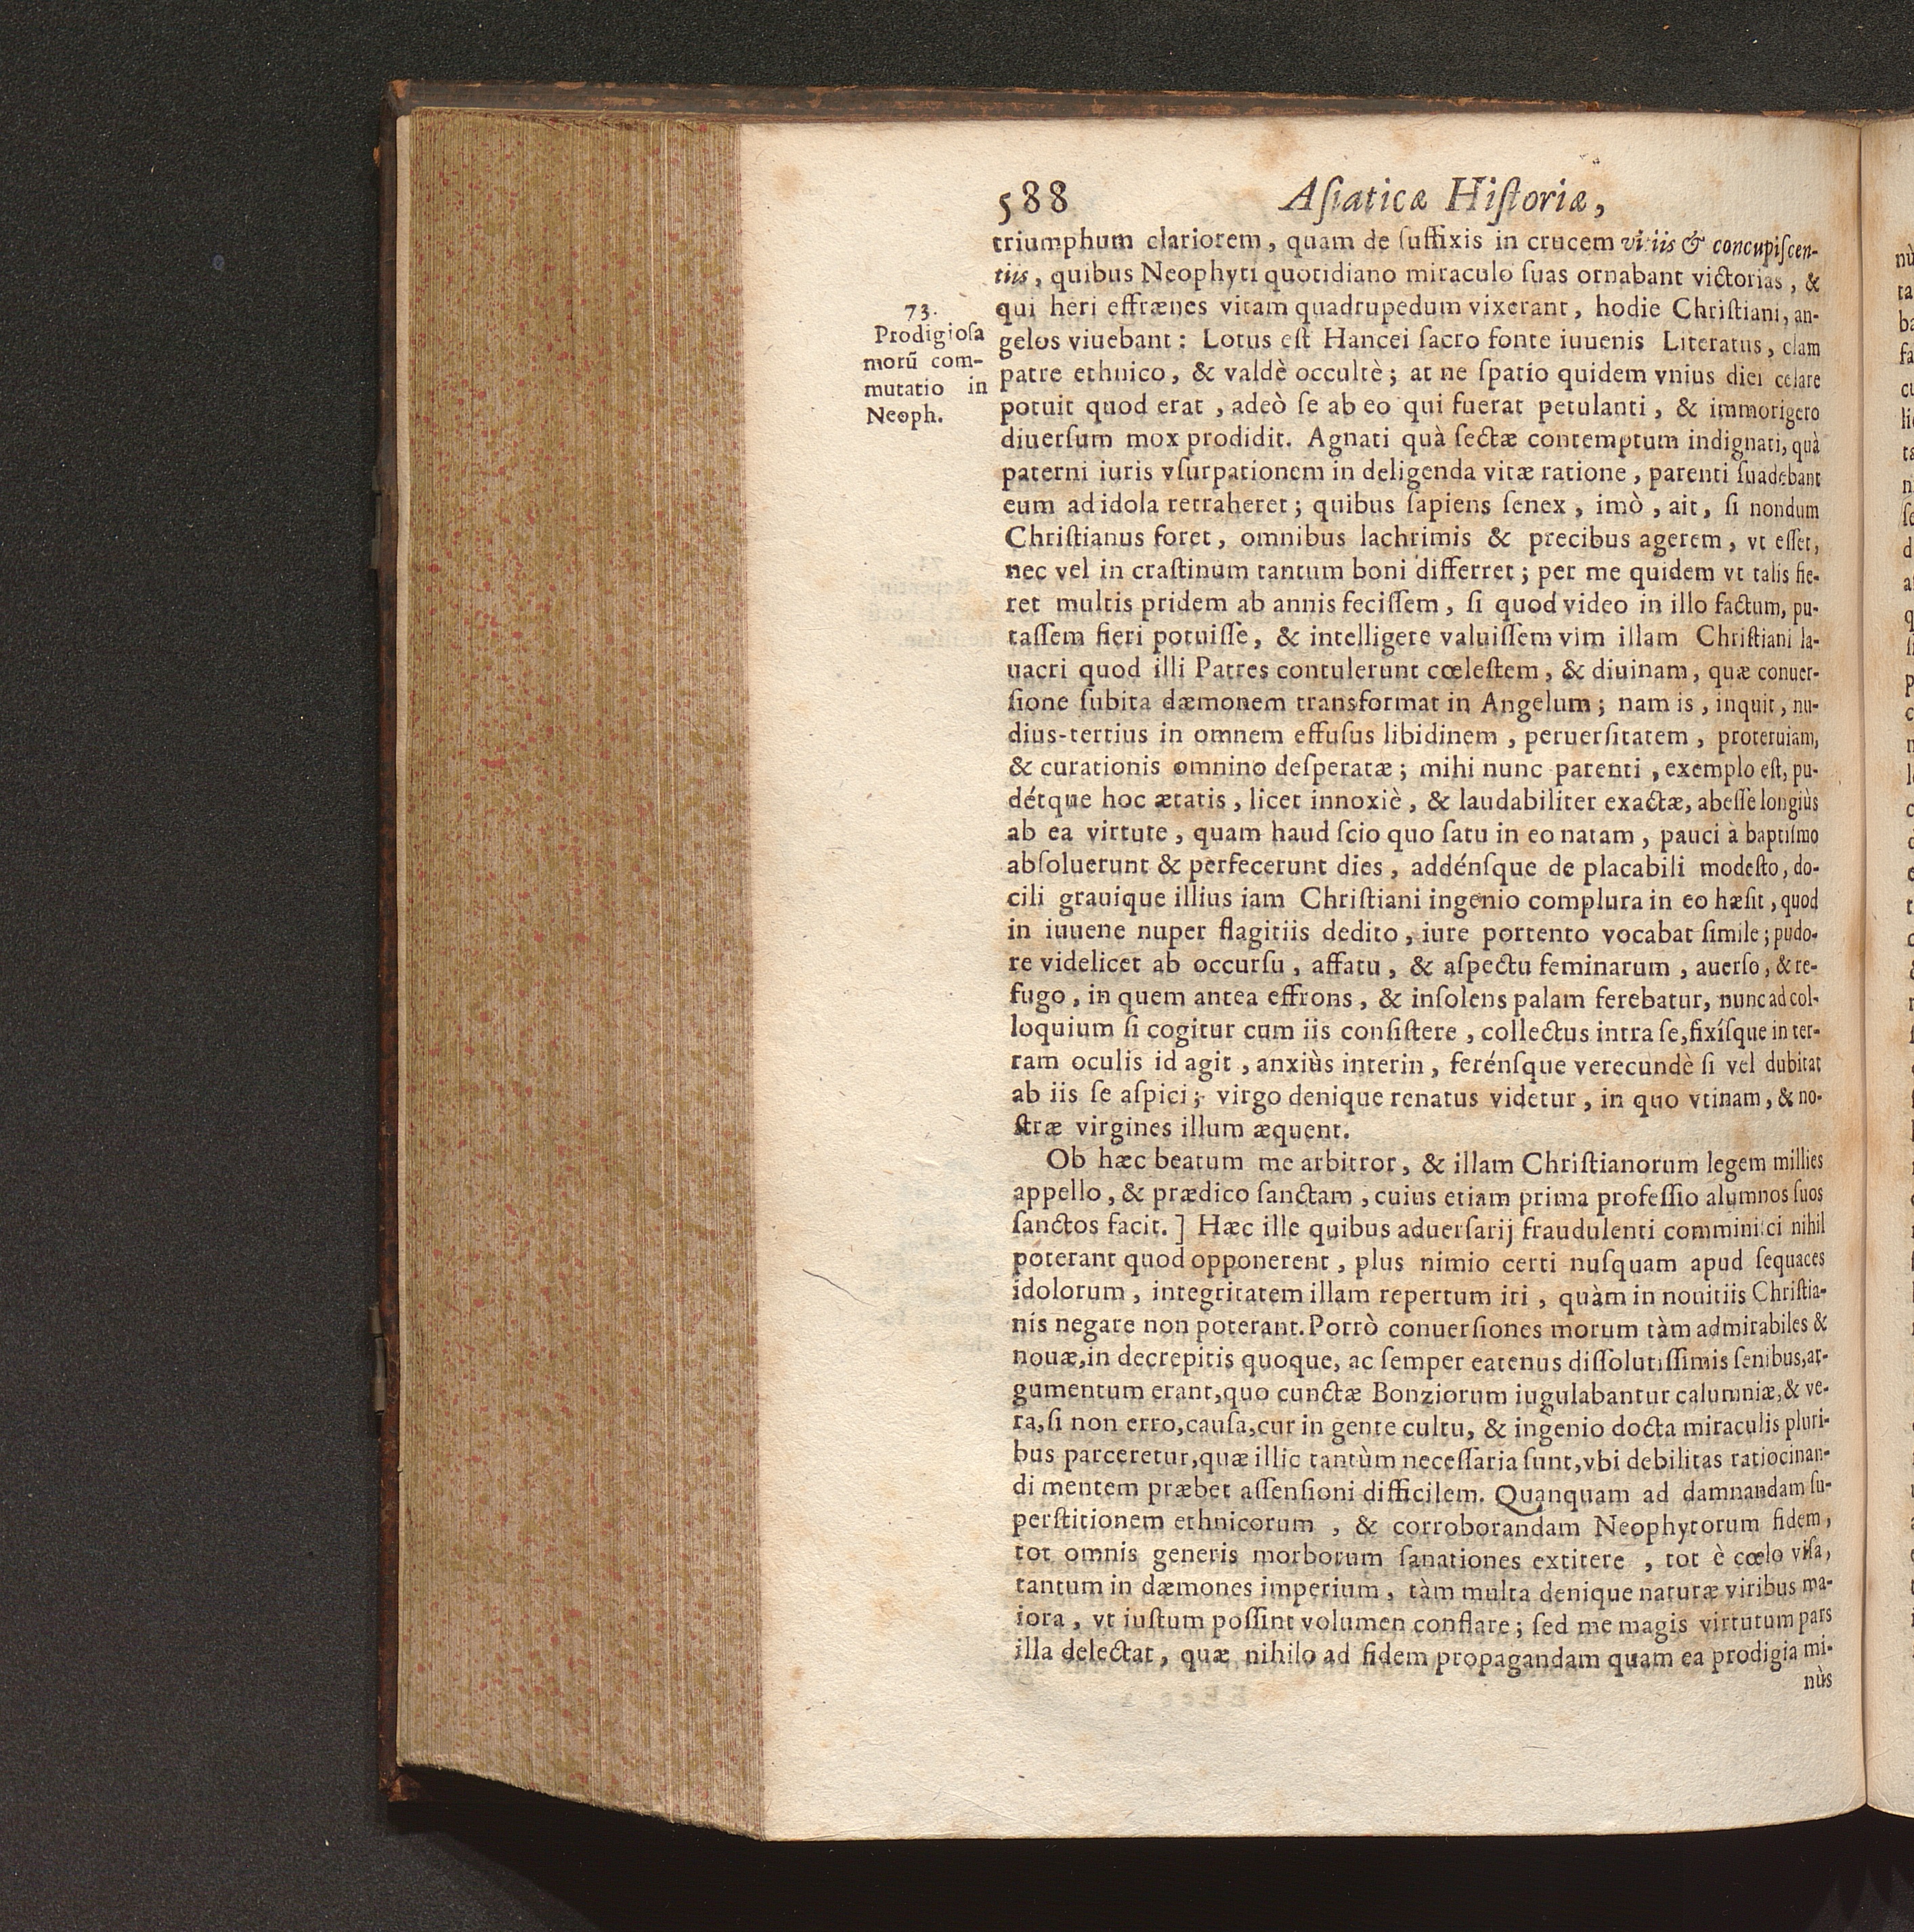 588 Aſiaticæ Hiſtoriæ,
triumphum clariorem, quam de ſuffixis in crucem vitiis & concupiſcen-
tiis, quibus Neophyti quotidiano miraculo ſuas ornabant victorias, &
qui heri effrænes vitam quadrupedum vixerant, hodie Chriſtiani, an-
gelos viuebant: Lotus eſt Hancei ſacro fonte iuuenis Literatus, clam
patre ethnico, & valdè occultè; at ne ſpatio quidem vnius diei celare
potuit quod erat, adeò ſe ab eo qui fuerat petulanti, & immorigero
diuerſum mox prodidit. Agnati quà ſectæ contemptum indignati, quà
paterni iuris vſurpationem in deligenda vitæ ratione, parenti ſuadebant
eum ad idola retraheret; quibus ſapiens ſenex, imò, ait, ſi nondum
Chriſtianus foret, omnibus lachrimis & precibus agerem, vt eſſet,
nec vel in craſtinum tantum boni differret; per me quidem vt talis fie-
ret multis pridem ab annis feciſſem, ſi quod video in illo factum, pu-
taſſem fieri potuiſſe, & intelligere valuiſſem vim illam Chriſtiani la-
uacri quod illi Patres contulerunt cœleſtem, & diuinam, quæ conuer-
ſione ſubita dæmonem transformat in Angelum; nam is, inquit, nu-
dius-tertius in omnem effuſus libidinem, peruerſitatem, proteruiam,
& curationis omnino deſperatæ; mihi nunc parenti, exemplo eſt, pu-
détque hoc ætatis, licet innoxiè, & laudabiliter exactæ, abeſſe longiùs
ab ea virtute, quam haud ſcio quo ſatu in eo natam, pauci à baptiſmo
abſoluerunt & perfecerunt dies, addénſque de placabili modeſto, do-
cili grauique illius iam Chriſtiani ingenio complura in eo hæſit, quod
in iuuene nuper flagitiis dedito, iure portento vocabat ſimile; pudo-
re videlicet ab occurſu, affatu, & aſpectu feminarum, auerſo, & re-
fugo, in quem antea effrons, & inſolens palam ferebatur, nunc ad col-
loquium ſi cogitur cum iis conſiſtere, collectus intra ſe, fixíſque in ter-
ram oculis id agit, anxiùs interin, ferénſque verecundè ſi vel dubitat
ab iis ſe aſpici; virgo denique renatus videtur, in quo vtinam, & no-
ſtræ virgines illum æquent.
Ob hæc beatum me arbitror, & illam Chriſtianorum legem millies
appello, & prædico ſanctam, cuius etiam prima profeſſio alumnos ſuos
ſanctos facit. ] Hæc ille quibus aduerſarij fraudulenti comminiſci nihil
poterant quod opponerent, plus nimio certi nuſquam apud ſequaces
idolorum, integritatem illam repertum iri, quàm in nouitiis Chriſtia-
nis negare non poterant. Porrò conuerſiones morum tàm admirabiles &
nouæ, in decrepitis quoque, ac ſemper eatenus diſſolutiſſimis ſenibus, ar-
gumentum erant, quo cunctæ Bonziorum iugulabantur calumniæ, & ve-
ra, ſi non erro, cauſa, cur in gente cultu, & ingenio docta miraculis pluri-
bus parceretur, quæ illic tantùm neceſſaria ſunt, vbi debilitas ratiocinan-
di mentem præbet aſſenſioni difficilem. Quanquam ad damnandam ſu-
perſtitionem ethnicorum, & corroborandam Neophytorum fidem,
tot omnis generis morborum ſanationes extitere, tot è cœlo viſa,
tantum in dæmones imperium, tàm multa denique naturæ viribus ma-
iora, vt iuſtum poſſint volumen conflare; ſed me magis virtutum pars
illa delectat, quæ nihilo ad fidem propagandam quam ea prodigia mi-
nùs
73.
Prodigioſa
morũ com-
mutatio in
Neoph.